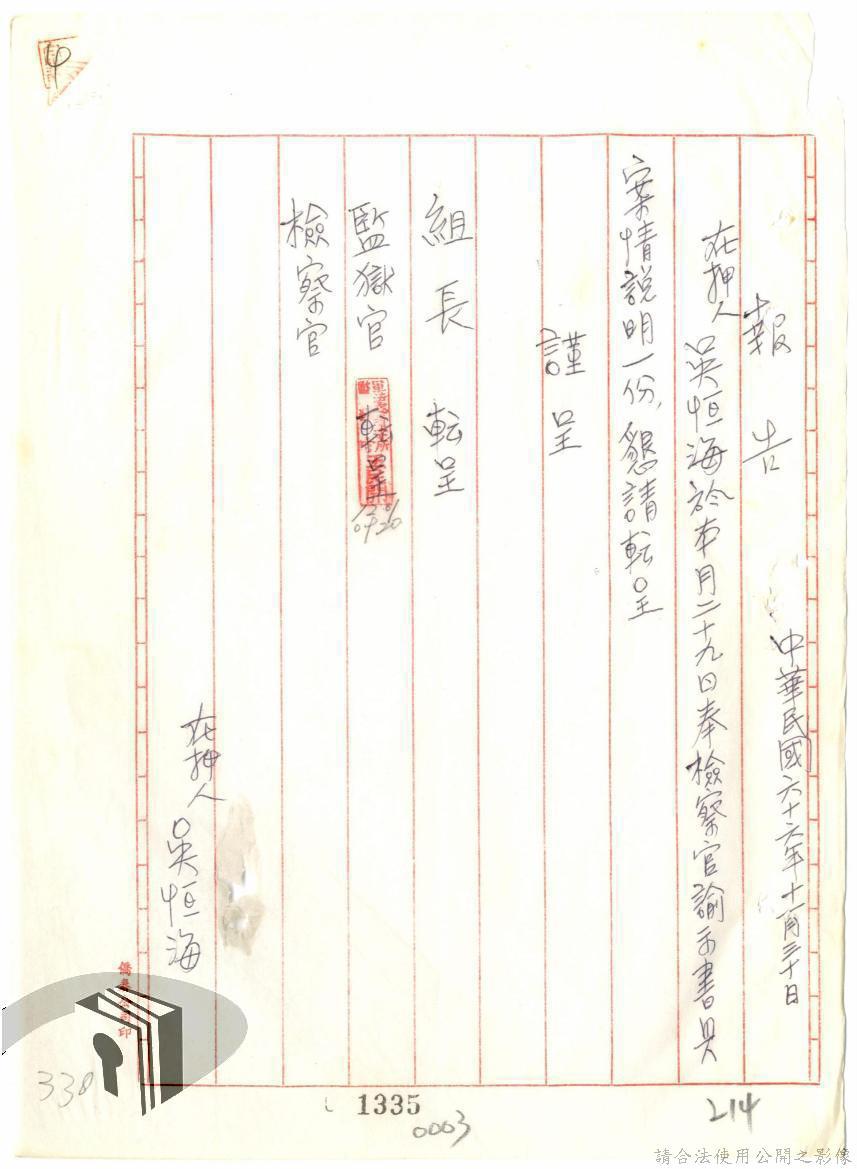 報告
中華民國六十六年十一月三十日
在押人吳恒海於本月二十九日奉檢察官諭示書具
案情説明一份,懇請転呈
謹呈
組長 転呈
監獄官 転呈
檢察官
在押人 吳恒海
338
1335
0003
214
請合法使用公開之影像